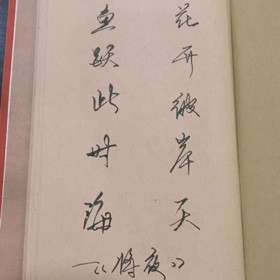 花开彼岸天
鱼跃此时海
—《将夜》